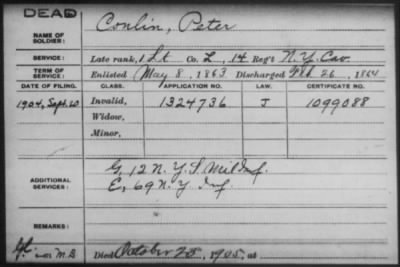 DEAD
Conlin, Peter
NAME OF SOLDIER:
SERVICE: Late rank, 1 Lt Co. L, 14 Reg't N.Y. Cav.
TERM OF SERVICE: Enlisted May 8, 1863 Discharged Feb 26, 1864
DATE OF FILING. CLASS. APPLICATION NO. LAW. CERTIFICATE NO.
1904, Sept. 20 Invalid, 1324736 J 1099088
Widow,
Minor,
G, 12 N.Y.S. Mil Inf.
ADDITIONAL SERVICES: E, 69 N.Y. Inf.
REMARKS:
Died October 25, 1905, at